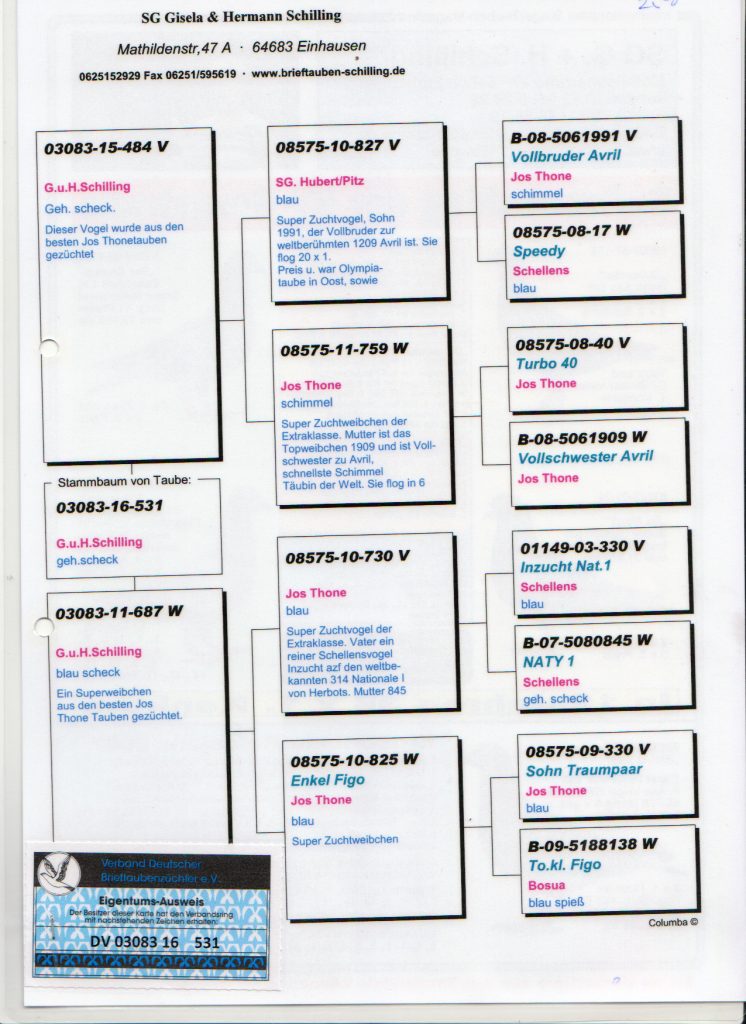 SG Gisela & Hermann Schilling
Mathildenstr,47 A · 64683 Einhausen
0625152929 Fax 06251/595619 · www.brieftauben-schilling.de
03083-15-484 V
G.u.H.Schilling
Geh. scheck.
Dieser Vogel wurde aus den
besten Jos Thonetauben
gezüchtet
08575-10-827 V
SG. Hubert/Pitz
blau
Super Zuchtvogel, Sohn
1991, der Vollbruder zur
weltberühmten 1209 Avril ist. Sie
flog 20 x 1.
Preis u. war Olympia-
taube in Oost, sowie
B-08-5061991 V
Vollbruder Avril
Jos Thone
schimmel
08575-08-17 W
Speedy
Schellens
blau
08575-11-759 W
Jos Thone
schimmel
Super Zuchtweibchen der
Extraklasse. Mutter ist das
Topweibchen 1909 und ist Voll-
schwester zu Avril,
schnellste Schimmel
Täubin der Welt. Sie flog in 6
08575-08-40 V
Turbo 40
Jos Thone
B-08-5061909 W
Vollschwester Avril
Jos Thone
Stammbaum von Taube:
03083-16-531
G.u.H.Schilling
geh.scheck
03083-11-687 W
G.u.H.Schilling
blau scheck
Ein Superweibchen
aus den besten Jos
Thone Tauben gezüchtet.
08575-10-730 V
Jos Thone
blau
Super Zuchtvogel der
Extraklasse. Vater ein
reiner Schellensvogel
Inzucht azf den weltbe-
kannten 314 Nationale I
von Herbots. Mutter 845
01149-03-330 V
Inzucht Nat.1
Schellens
blau
B-07-5080845 W
NATY 1
Schellens
geh. scheck
08575-10-825 W
Enkel Figo
Jos Thone
blau
Super Zuchtweibchen
08575-09-330 V
Sohn Traumpaar
Jos Thone
blau
B-09-5188138 W
To.kl. Figo
Bosua
blau spieß
Columba ©
Verband Deutscher
Brieftaubenzüchter e.V.
Eigentums-Ausweis
Der Besitzer dieser Karte hat den Verbandsring
mit nachstehenden Zeichen erhalten:
DV 03083 16 531